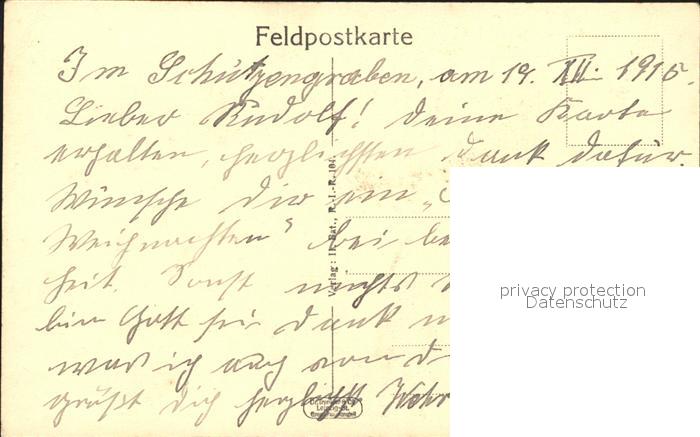 Feldpostkarte
Im Schützengraben, am 19. XII. 1915.
Lieber Rudolf! Deine Karte
erhalten, herzlichsten Dank dafür.
Wünsche Dir ein „
Weihnachten" bei be
heit. Sonst nichts
bin Gott sei Dank
was ich auch von D
grüßt Dich herzlichst
Verlag: II. Bat., R.-I.-R. 104.
privacy protection
Datenschutz